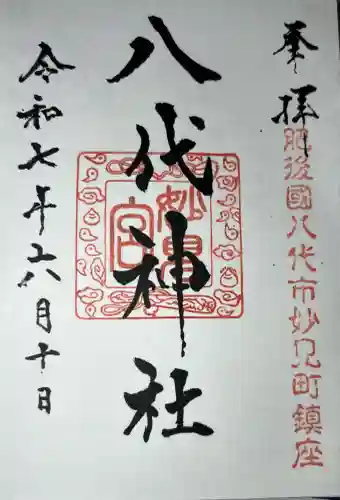 奉拝
肥後國八代市妙見町鎮座
八代神社
妙見
宮
令和七年六月十日